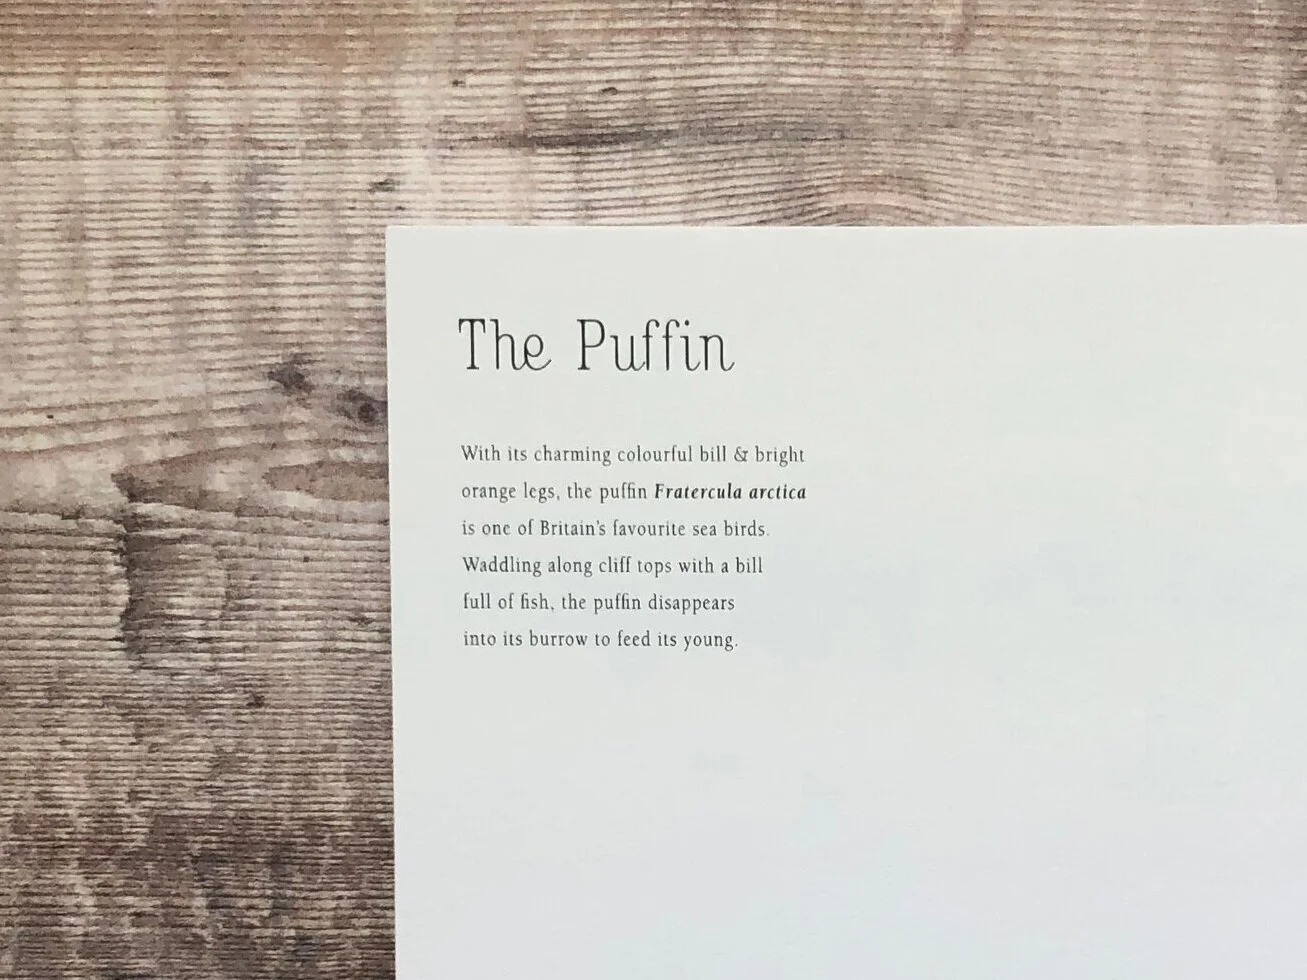 The Puffin
With its charming colourful bill & bright
orange legs, the puffin Fratercula arctica
is one of Britain's favourite sea birds.
Waddling along cliff tops with a bill
full of fish, the puffin disappears
into its burrow to feed its young.